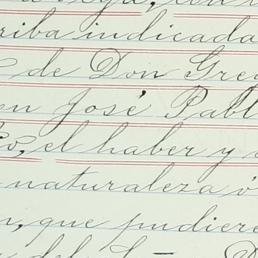 riba indicada
de Don Gre
en José Pabl
co, el haber y
naturaleza ó
n, que pudiere
del